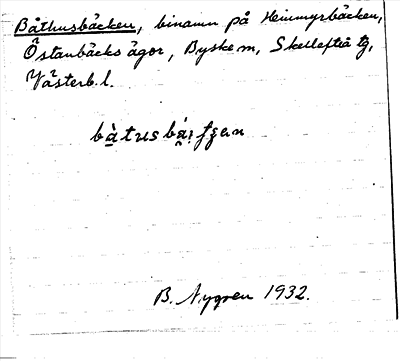 Båthusbäcken, binamn på Heimmyrbäcken,
Östanbäcks ägor, Byske sn, Skellefteå tg,
Västerb. l.
B. Nygren 1932.